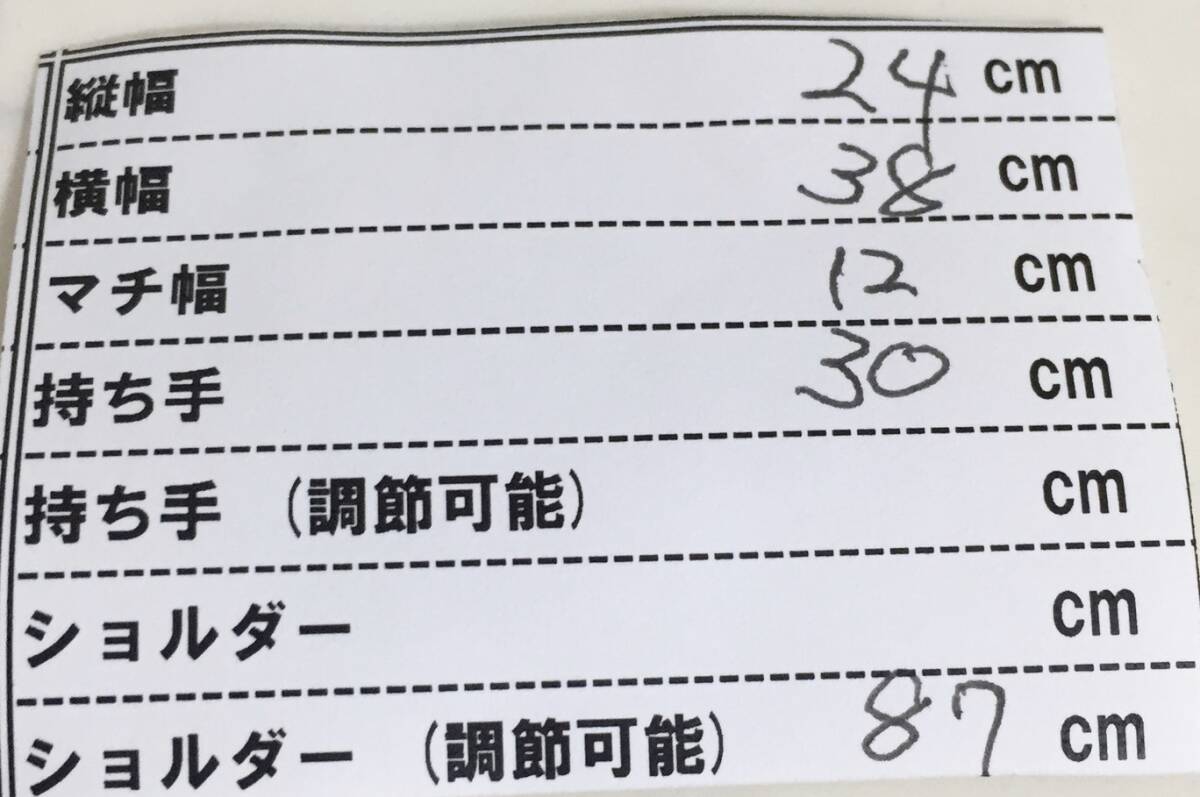 縦幅 24 cm
横幅 38 cm
マチ幅 12 cm
持ち手 30 cm
持ち手 (調節可能) cm
ショルダー cm
ショルダー (調節可能) 87 cm